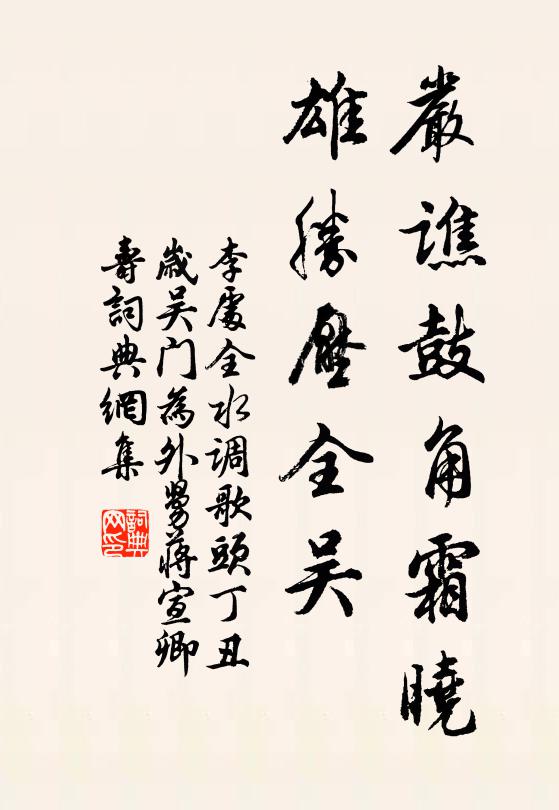 嚴譙鼓角霜曉
雄勝壓全吴
李處全水调歌頭丁丑
歲吴门為外舅蔣宣卿
壽詞典網集
詞典网印